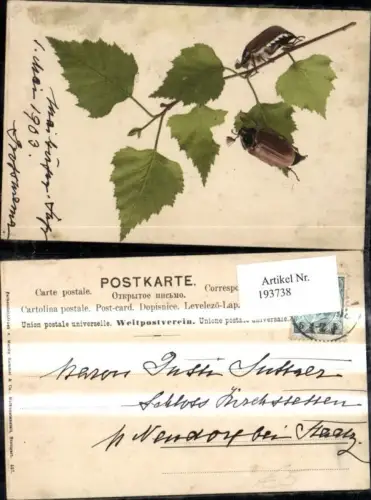 1. Mai 1903.
Grossmama.
POSTKARTE.
Carte postale. Открытое письмо. Correspon
Cartolina postale. Post-card. Dopisnice. Levelező-Lap.
Union postale universelle. Weltpostverein. Unione postale universale.
Artikel Nr.
193738
Baron Justin Suttner
Schloss Kirchstetten
p Neudorf bei Staatz